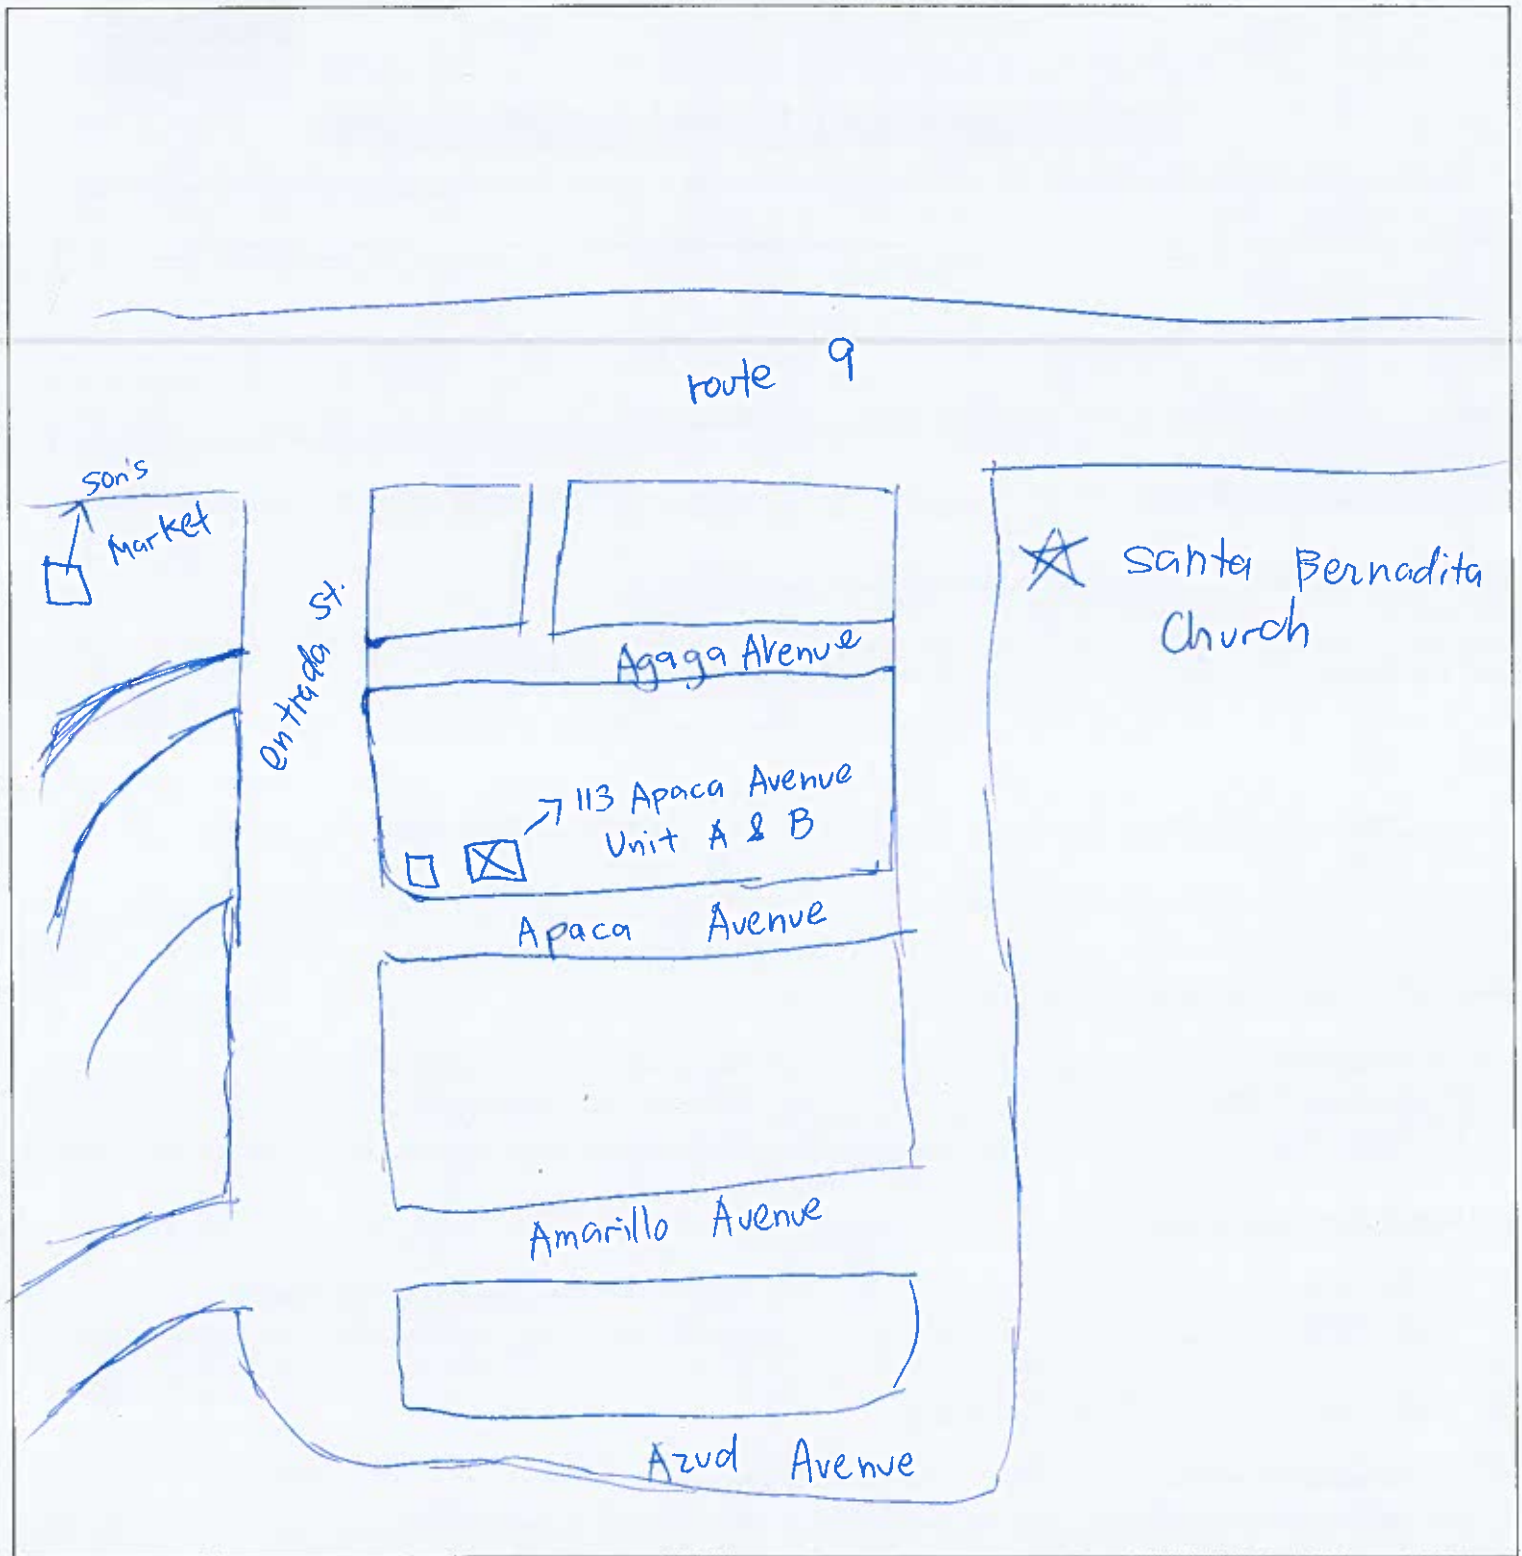 route 9
son's
Market
Santa Bernadita
Church
entrada st.
Agaga Avenue
113 Apaca Avenue
Unit A & B
Apaca Avenue
Amarillo Avenue
Azud Avenue